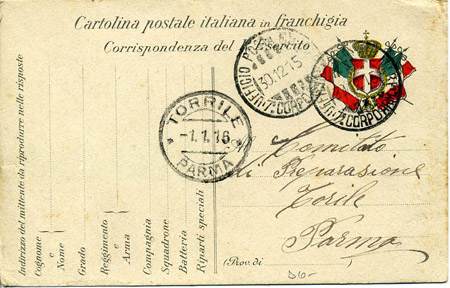 Cartolina postale italiana in franchigia
Corrispondenza del R. Esercito
UFFICIO POSTA
30.12.15
CORPO
CORPO
TORRILE
-1.1.16
* PARMA *
Comitato
di Preparazione
Torile
Parma
(Prov. di
Indirizzo del mittente da riprodurre nelle risposte
Cognome e Nome
Grado
Reggimento e Arma
Compagnia
Squadrone
Batteria
Riparti speciali